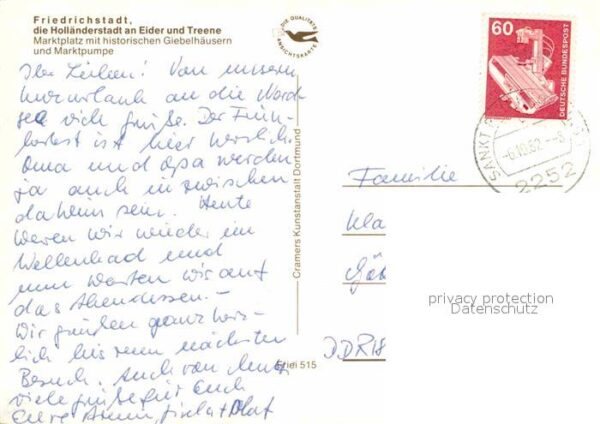 Friedrichstadt,
die Holländerstadt an Eider und Treene
Marktplatz mit historischen Giebelhäusern
und Marktpumpe
DIE QUALITÄTS
ANSICHTSKARTE
Ihr Lieben! Von unserm
Kurzurlaub an die Nord-
see viele Grüße. Der
ist hier herrlich.
Oma und Opa werden
ja auch inzwischen
daheim sein. Heute
waren wir wieder im
Wellenbad und
nun warten wir auf
das Abendessen. -
Wir grüßen ganz herz-
lich bis zum nächsten
Besuch. Auch von
viele Grüße für Euch
Eure Gisela + Olaf
Cramers Kunstanstalt Dortmund
Efriei 515
60
DEUTSCHE BUNDESPOST
SANKT
-6.10.82.--8
2252
Familie
Kla
DDR 18
privacy protection
Datenschutz